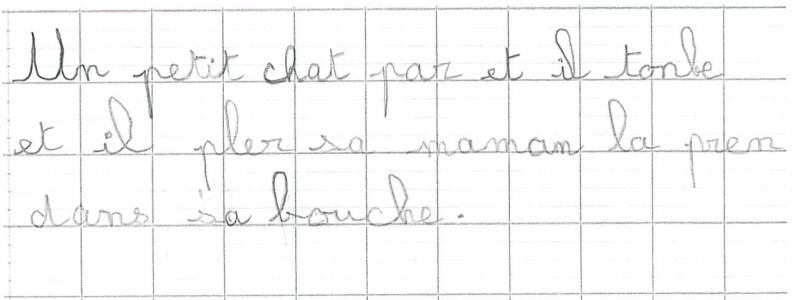 Un petit chat par et il tonbe
et il pler sa maman la pren
dans sa bouche.